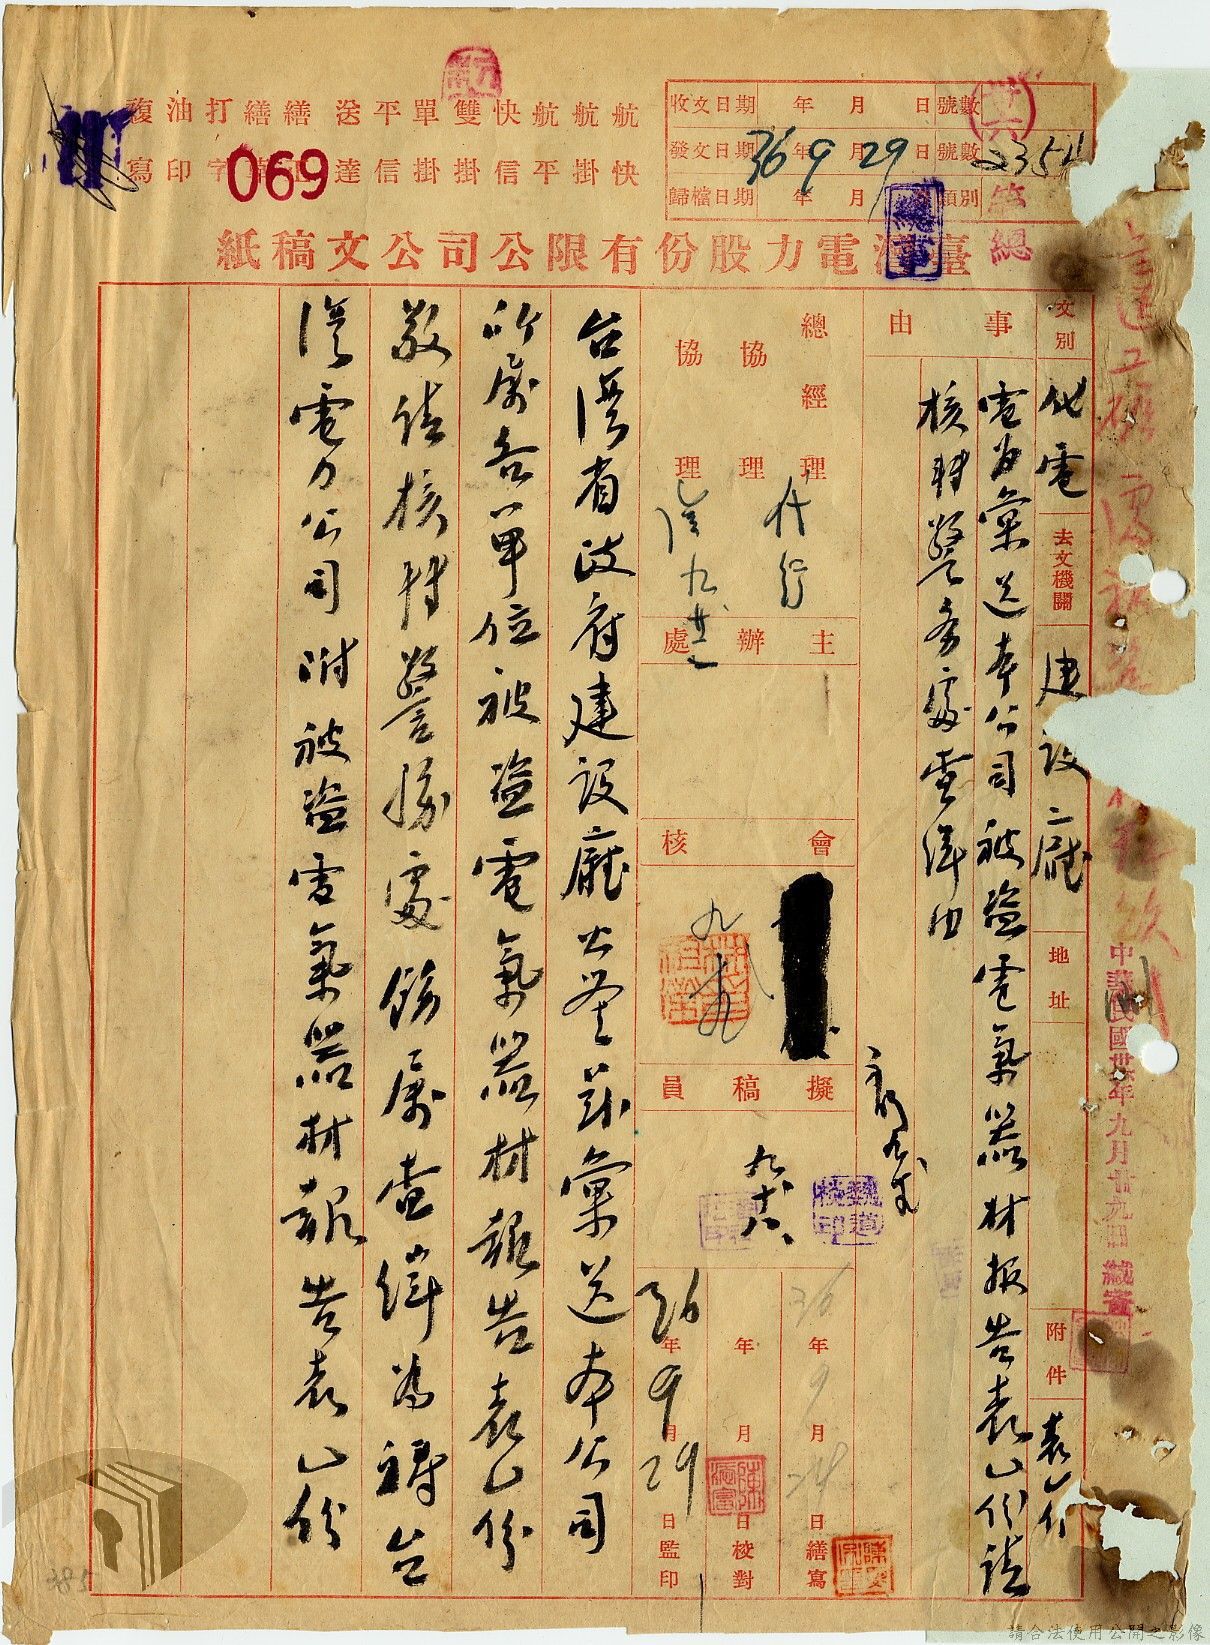 航航航快雙單平送 繕繕打油複
快掛平信掛掛信達
字印寫
069
收文日期 年 月 日 號數
發文日期 36年9月29日 號數
歸檔日期 年 月
類別
臺灣電力股份有限公司公文稿紙
文別 代電 去文機關 建設廳 地址 附件 表乙份
事由
電為彙送本公司被盜電氣器材报告表乙份請
核轉警务處查緝由
總經理 代行
協理
協理
主辦處
會核
擬稿員
36年9月24日繕寫
年 月 日校對
36年9月29日監印
台灣省政府建設廳公鑒茲彙送本公司
所屬各單位被盜電氣器材報告表乙份
敬請核轉警務處飭屬查緝為禱台
灣電力公司附被盜電氣器材報告表乙份
中華民國卅六年九月廿九日緘寄
總
385
請合法使用公開之影像